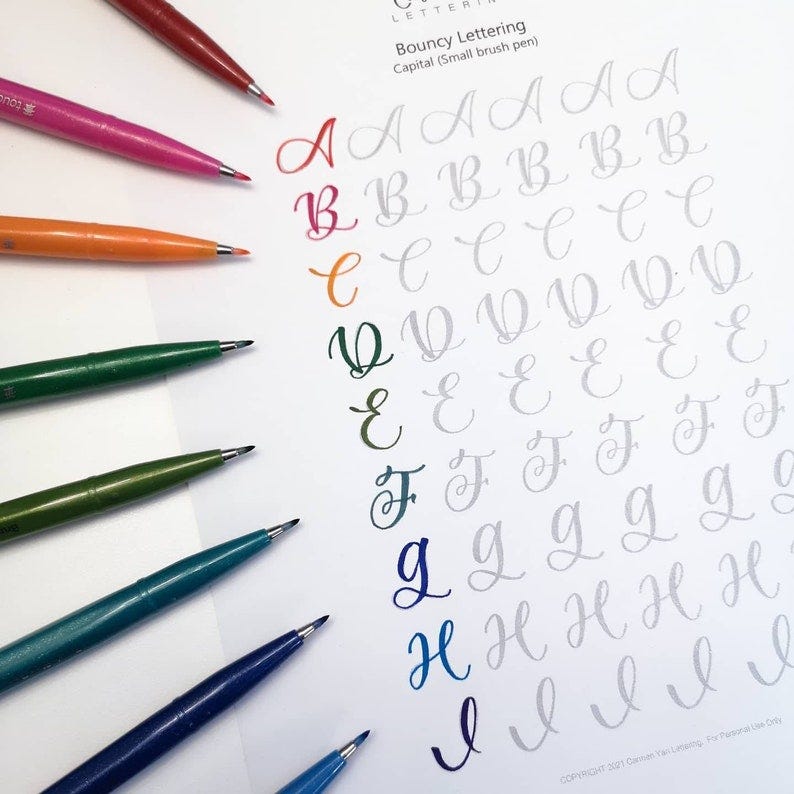 LETTERIN
Bouncy Lettering
Capital (Small brush pen)
A A A A A A
B B B B B B
C C C C C C
D D D D D D
E E E E E E
F F F F F F
G G G G G G
H H H H H
I I I I I
COPYRIGHT 2021 Carmen Yan Lettering. For Personal Use Only
touc